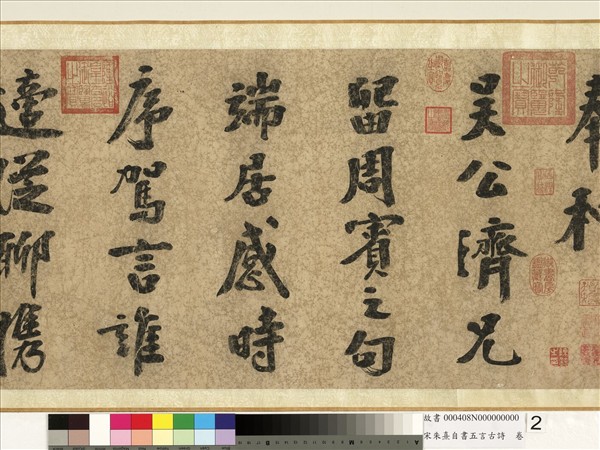 奉和
吴公濟兄
留周賓之句
端居感時
序駕言誰
適從聊携
故書 000408N000000000
宋朱熹自書五言古詩 卷
2